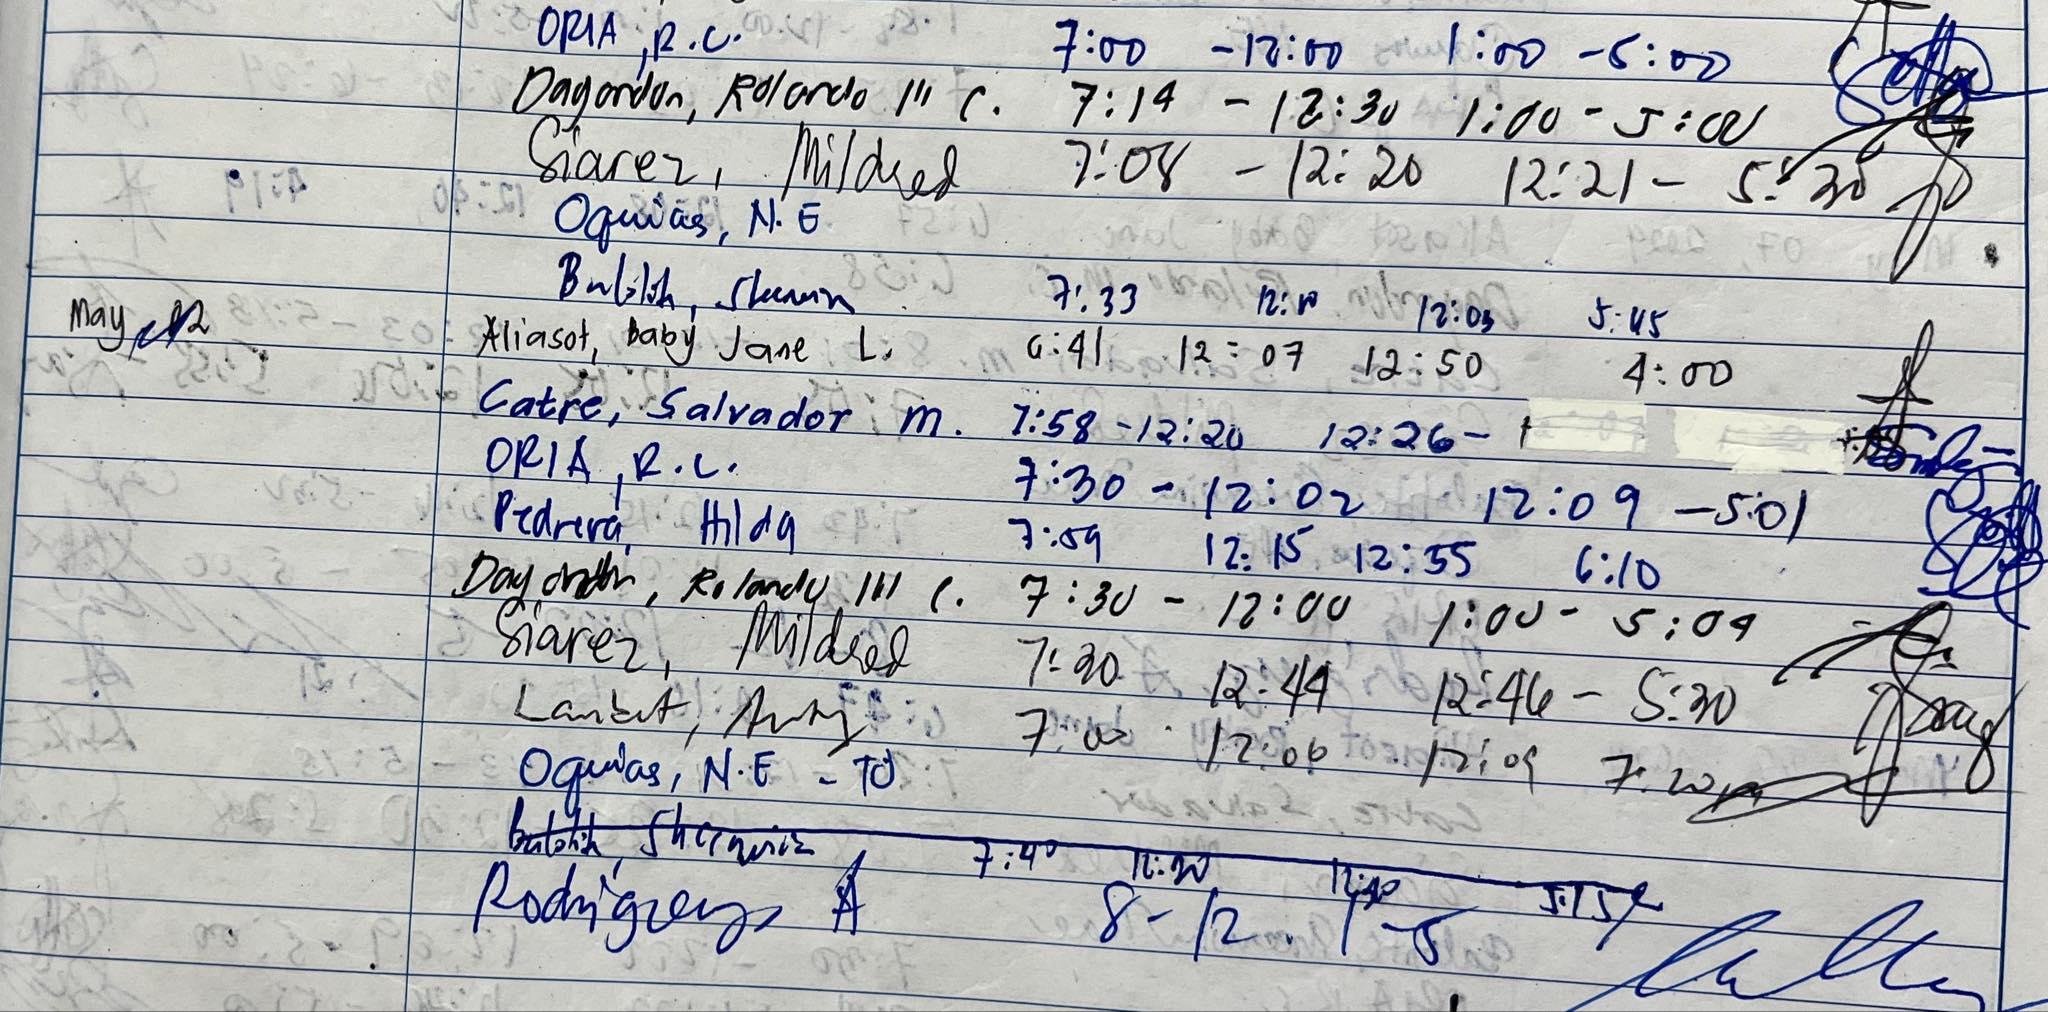 ORIA, R.C. 7:00 - 12:00 1:00 - 5:00
Dagondon, Rolando III C. 7:14 - 12:30 1:00 - 5:00
Siarez, Mildred 7:08 - 12:20 12:21 - 5:30
Oquias, N.E
7:33 12:10 12:03 5:45
May 12 Aliasot, Baby Jane L. 6:41 12:07 12:50 4:00
Catre, Salvador M. 7:58 - 12:20 12:26 -
ORIA, R.C. 7:30 - 12:02 12:09 - 5:01
Pedrera, Hilda 7:59 12:15 12:55 6:10
Dagondon, Rolando III C. 7:30 - 12:00 1:00 - 5:04
Siarez, Mildred 7:30 12:44 12:46 - 5:30
7:00 12:06 12:09 7:20
Oquias, N.E - TO
Sherwin 7:40 12:30 12:40 5:15
A 8 - 12 1 - 5